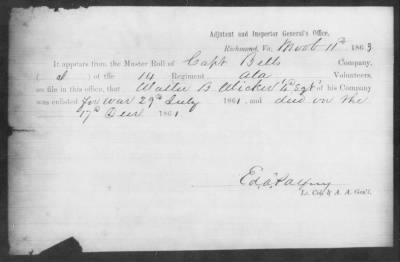 Adjutant and Inspector General's Office,
Richmond, Va., 11th 1863
It appears from the Muster Roll of Capt Bells Company,
( I ) of the 14 Regiment Ala Volunteers,
on file in this office, that Walter B. 4th Sgt of his Company
was enlisted for war 29th July 1861, and died on the
17th Decr 1861
Lt. Col. & A. A. Gen'l.